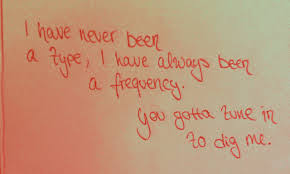 I have never been
a type, I have always been
a frequency.
You gotta tune in
to dig me.